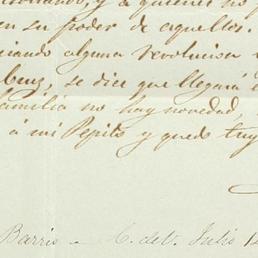 y a quienes no
en su poder de aquellos.
alguna revolucion
se dice que llegará
familia no hay novedad,
á mi Pepito y quedo tuy
Barris C. det. Julio 12